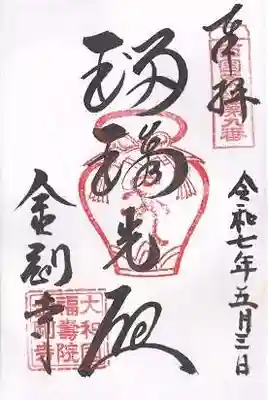 奉拝
令和七年五月三日
瑠璃光殿
金剛寺
大和国
福壽院
金剛寺